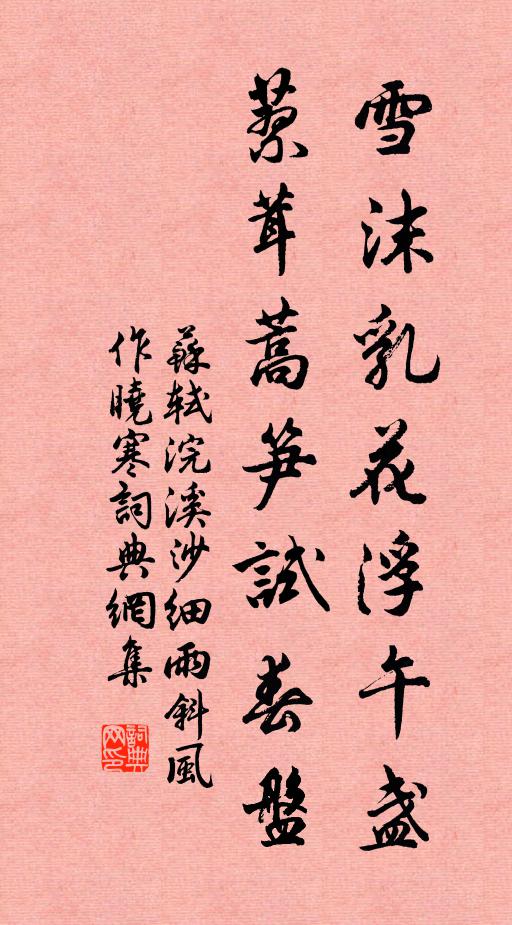 雪沫乳花浮午盞
蓼茸蒿笋試春盤
蘇軾浣溪沙細雨斜風
作曉寒詞典網集
詞典
网印